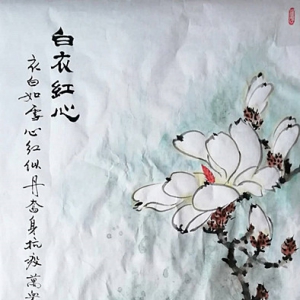 白衣红心
衣白如雪心红似丹奋身抗疫万